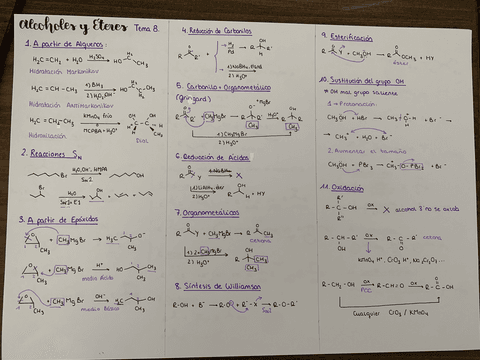 Alcoholes y Éteres Tema 8.
1. A partir de Alquenos:
H₂C=CH₂ + H₂O H₂SO₄ → HO CH₃
Hidratación Markonikov
H₂C=CH-CH₃ 1) BH₃ 2) H₂O₂, OH⁻
Hidratación Antimarkonikov
H₂C=CH-CH₃ KMnO₄ frío MCPBA + H₂O
Hidroxilación Diol
2. Reacciones SN
Br H₂O, OH⁻, HMPA SN2 OH
Br H₂O SN1 + E1
3. A partir de Epóxidos
CH₃ + CH₃MgBr → H₃C
CH₃ + CH₃MgBr H⁺ HO CH₃
medio Ácido
CH₃ + CH₃MgBr OH⁻ H₃C
medio Básico
4. Reducción de Carbonilos
R R' H₂ Pd OH R H R'
2) H₂O
5. Carbonilo + Organometálico
(Gringard)
R R' + CH₃MgBr → H₂O
1) CH₃MgBr
2) H₂O
6. Reducción de Ácidos
R Y
2) H₂O
R OH + HY
7. Organometálicos
R Y + CH₃MgBr → R CH₃
cetona
2) H₂O
8. Síntesis de Williamson
R-OH + B⁻ → R-O⁻ + R'-X → R-O-R'
9. Esterificación
R Y + CH₃OH → R OCH₃ + HY
éster
10. Sustitución del grupo OH
OH mal grupo saliente
1 = Protonación
CH₃OH + HBr →
CH₃⁺ + H₂O + Br⁻ →
2. Aumentar el tamaño
CH₃OH + PBr₃ → CH₃-O-PBr₂ + Br⁻
11. Oxidación
R-C-OH OX → X alcohol 3° no se oxida
R-CH-R' OH OX → R-C-R' O cetona
KMnO₄ H⁺, CrO₃ H⁺, Na₂Cr₂O₇...
R-CH₂-OH OX PCC R-CH=O OX → R-C-OH O
Cualquier CrO₃ / KMnO₄